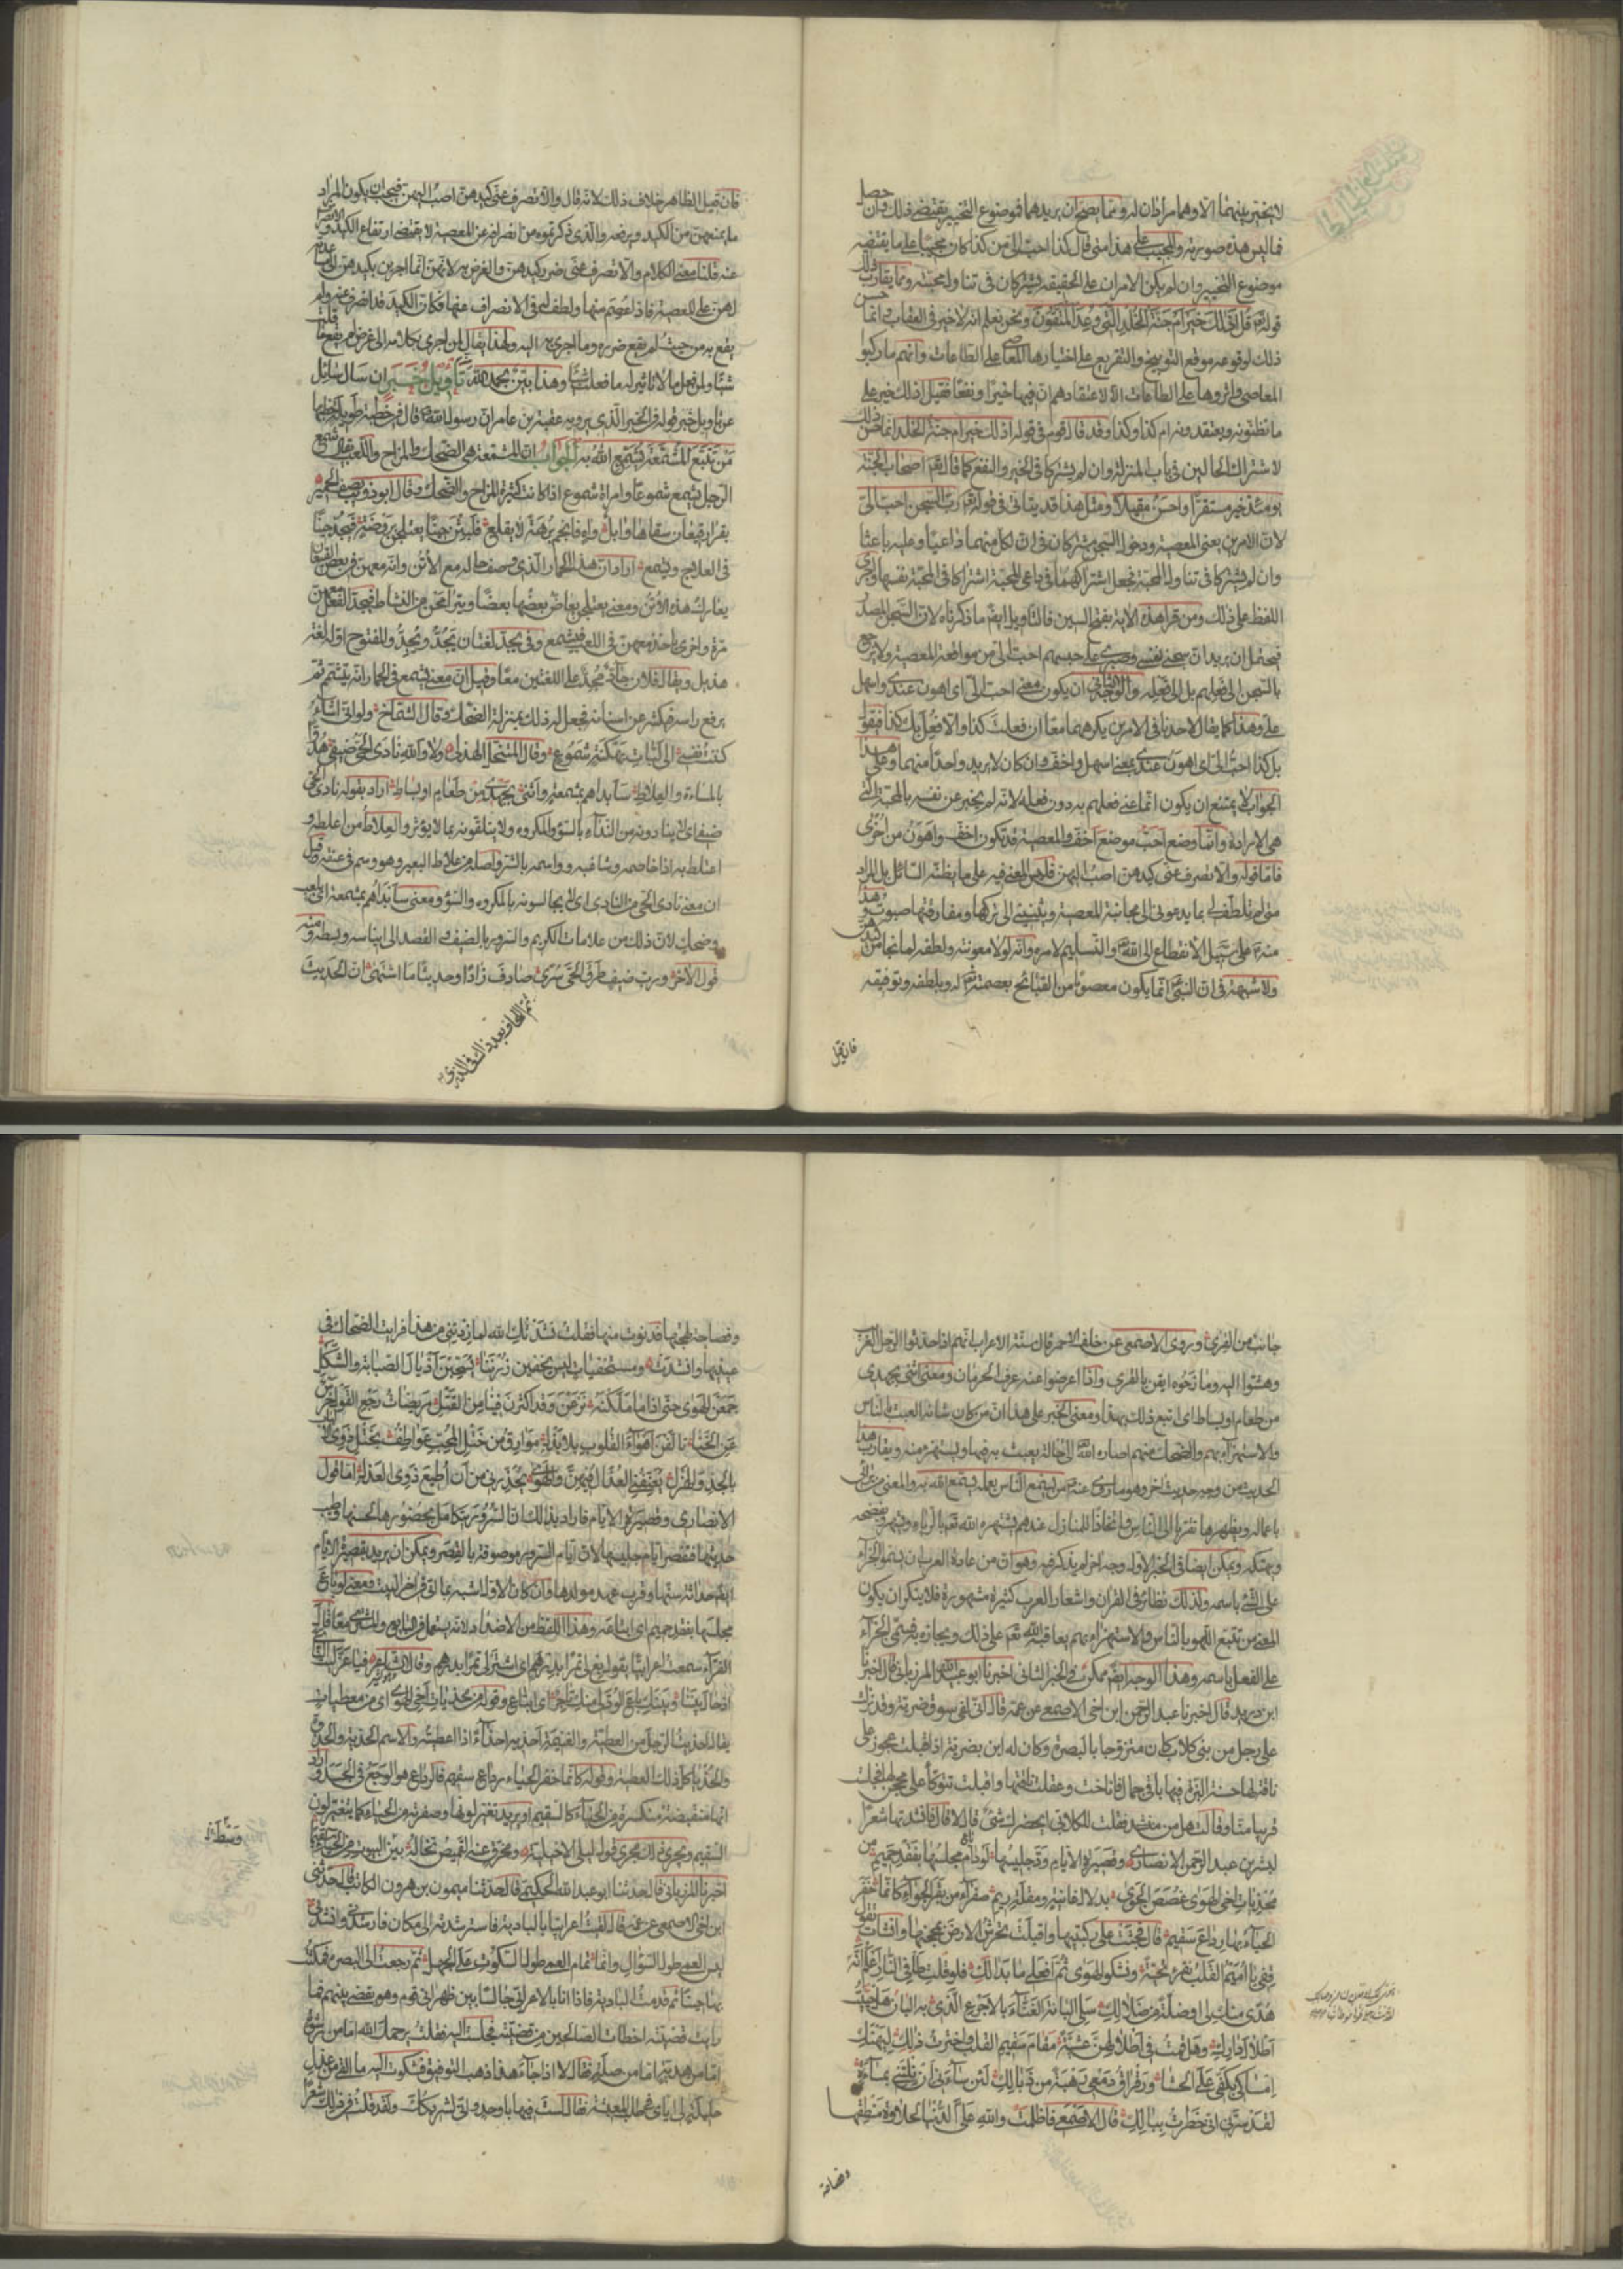 لا يخير بينهما الا وهما مرادان له ومما يصح ان يريدهما فموضوع التخيير يقتضي ذلك وان حصل
فيما ليس هذه صورته والمجيب على هذا متى قال كذا احب الي من كذا كان مجيبا على ما يقتضيه
موضوع التخيير وان لم يكن الامران على الحقيقة يشتركان في تناول محبته ومما يقارب ذلك
قوله تع قل اذلك خير ام جنة الخلد التي وعد المتقون ونحن نعلم انه لا خير في العقاب وانما حسن
ذلك لوقوعه موقع التوبيخ والتقريع على اختيارها المعاصي على الطاعات وانهم ما ركبوا
المعاصي واثروها على الطاعات الا لاعتقادهم ان فيها خيرا ونفعا فقيل اذلك خير على
ما تظنونه وتعتقدونه ام كذا وكذا وقد قال قوم في قوله اذلك خير ام جنة الخلد انما حسن ذلك
لاشتراك الحالين في باب المنزلة وان لم يشتركا في الخير والنفع كما قال تع اصحاب الجنة
يومئذ خير مستقرا واحسن مقيلا ومثل هذا قد يتاتى في قوله تع رب السجن احب الي
لان الامرين يعني المعصية ودخول السجن مشتركان في ان لكل منهما داعيا وعليه باعثا
وان لم يشتركا في تناول المحبة فجعل اشتراكهما في داعي المحبة اشتراكا في المحبة نفسها واجرى
اللفظ على ذلك ومن قرا هذه الاية بفتح السين فالتاويل ايضا ما ذكرناه لان السجن المصدر
فيحتمل ان يريد ان سجني نفسي وصبري على حبسهم احب الي من مواقعة المعصية ولا يرجع
بالسجن الى فعلهم بل الى فعله والوجه الثاني ان يكون معنى احب الي اي اهون عندي واسهل
علي وهذا كما يقال لاحدنا في الامرين يكرههما معا ان فعلت كذا والا فعل بك كذا فيقول
بل كذا احب الي اي اهون عندي بمعنى اسهل واخف وان كان لا يريد واحدا منهما وعلى هذا
الجواب لا يمتنع ان يكون انما عنى فعلهم به دون فعله لانه لم يخبر عن نفسه بالمحبة التي
هي الارادة وانما وضع احب موضع اخف والمعصية قد تكون اخف واهون من اخرى
فاما قوله والا تصرف عني كيدهن اصب اليهن فليس المعنى فيه على ما يظنه السائل بل المراد
متى لم تلطف لي بما يدعوني الى مجانبة المعصية ويثنيني الى تركها ومفارقتها صبوت وهذا
منه ع على سبيل الانقطاع الى الله تع والتسليم لامره وانه لولا معونته ولطفه لما نجا من كيدهن
ولا شبهة في ان النبي ع انما يكون معصوما من القبائح بعصمة الله تع له وبلطفه وتوفيقه
فان قيل
فان قيل الظاهر خلاف ذلك لانه قال والا تصرف عني كيدهن اصب اليهن فيجب ان يكون المراد
ما يمنعهن من الكيد ويرفعه والذي ذكرتموه من انصرافه عن المعصية لا يقتضي ارتفاع الكيد والانصراف
عنه قلنا معنى الكلام والا تصرف عني ضرر كيدهن والغرض به لانهن انما اجرين بكيدهن الى مساعدته
لهن على المعصية فاذا عصم منها ولطف له في الانصراف عنها فكان الكيد قد انصرف عنه ولم
يقع به من حيث لم يقع ضرره وما اجرى به اليه ولهذا يقال لمن اجرى بكلامه الى غرض لم يقع ما قلت
شيئا ولمن فعل ما لا تاثير له ما فعلت شيئا وهذا بين بحمد الله تع تاويل خبر ان سال سائل
عن تاويل خبر قوله في الخبر الذي يرويه عقبة بن عامر ان رسول الله ص قال في خطبة طويلة خطبها
من يتتبع المشمعة يشمع الله به الجواب ان المشمعة هي الضحك والمزاح واللعب يقال شمع
الرجل يشمع شموعا وامراة شموع اذا كانت كثيرة المزاح والضحك وقال ابو ذؤيب يصف الحمير
بقرار قيعان سقاها وابل واه فاثجم برهة لا يقلع فلبثن حينا يعتلجن بروضة فيجد حينا
في العلاج ويشمع اراد ان هذا الحمار الذي وصف حاله مع الاتن وانه معهن في بعض القيعان
يعارك هذه الاتن ومعنى يعتلجن يعاض بعضها بعضا ويترامحن من النشاط فيجد الفحل معهن
مرة واخرى ياخذ معهن في اللعب فيشمع وفي يجد لغتان يجد ويجد والمفتوح اوله لغة
هذيل ويقال فلان جاد مجد على اللغتين معا وقيل ان معنى يشمع في الحمار انه يتشمم ثم
يرفع راسه فيكشر عن اسنانه فجعل له ذلك بمنزلة الضحك وقال الشماخ ولو اني اشاء
كننت نفسي الى لبات بهكنة شموع وقال المتنخل الهذلي ولا والله نادى الحي ضيفي هدوا
بالمساءة والعلاط سابداهم بمشمعة واثني بجهدي من طعام او بساط اراد بقوله نادى الحي
ضيفي لا ينادونه من النداء بالسوء والمكروه ولا يتلقونه بما لا يؤثر والعلاط من اعلطه و
اعتلط به اذا خاصمه وشاغبه ووسمه بالشر واصله من علاط البعير وهو وسم في عنقه وقيل
ان معنى نادى الحي من النادي اي لا يجالسونه بالمكروه والسوء ومعنى سابداهم بمشمعة اي بلعب
وضحك لان ذلك من علامات الكريم والسرور بالضيف والقصد الى ايناسه وبسطه ومنه
قول الاخر ورب ضيف طرق الحي سرى صادف زادا وحديثا ما اشتهى ان الحديث
جانب من القرى وروى الاصمعي عن خلف الاحمر قال سنة الاعراب انهم اذا حدثوا الرجل الغريب
وهشوا اليه ومازحوه ايقن بالقرى واذا اعرضوا عنه عرف الحرمان ومعنى اثني بجهدي
من طعام او بساط اي اتبع ذلك بهذا ومعنى الخبر على هذا ان من كان شانه العبث بالناس
والاستهزاء بهم والضحك منهم اصاره الله الى حالة يعبث به فيها ويستهزء منه ويقارب هذا
الحديث من وجه حديث اخر وهو ما روي عنه ع من يسمع الناس بعمله يسمع الله به والمعنى من يرائي
باعماله ويظهرها تقربا الى الناس واتخاذا للمنازل عندهم يشهره الله تع بالرياء ويشهره ويفضحه
ويهتكه ويمكن ايضا في الخبر الاول وجه اخر لم يذكر فيه وهو ان من عادة العرب ان يسموا الجزاء
على الشئ باسمه ولذلك نظائر في القران واشعار العرب كثيرة مشهورة فلا ينكر ان يكون
المعنى من تتبع اللهو بالناس والاستهزاء بهم يعاقبه الله تع على ذلك ويجازه به فسمي الجزاء
على الفعل باسمه وهذا الوجه ايضا ممكن في الخبر الثاني اخبرنا ابو عبيد الله المرزباني قال اخبرنا
ابن دريد قال اخبرنا عبد الرحمن ابن اخي الاصمعي عن عمه قال اني لفي سوق ضرية وقد نزلت
على رجل من بني كلاب كان متزوجا بالبصرة وكان له ابن بضرية اذ اقبلت عجوز على
ناقة لها حسنة البزة فيها باقي جمال فاناخت وعقلت ناقتها واقبلت تتوكا على محجن لها فجلست
قريبا منا وقالت هل من منشد فقلت للكلابي ايحضرك شئ قال لا قال فانشدتها شعرا
لبشر بن عبد الرحمن الانصاري وقصيرة الايام ود جليسها لو دام مجلسها بفقد حميم من
محذيات اخي الهوى غصص الجوى بدلال غانية ومقلة ريم صفراء من بقر الجواء كانما خفر
الحياء بها رداع سقيم قال فجثت على ركبتيها واقبلت تخرش الارض بمحجنها وانشات تقول
قفي يا اميم القلب نقرء تحية ونشكو الهوى ثم افعلي ما بدا لك فلو قلت طا في النار اعلم انه
هدى منك لي او ضلة من ضلالك سلي البانة الغناء بالاجرع الذي به البان هل حييت
اطلال دارك وهل قمت في اطلالهن عشية مقام سقيم القلب واخترت ذلك ليهنك
امساكي بكفي على الحشا ورقراق دمعي رهبة من زيالك لئن ساءني ان نلتني بمساءة
لقد سرني اني خطرت ببالك قال الاصمعي فاظلمت والله علي الدنيا لحلاوة منطقها
وفصاحة
وفصاحة لهجتها فدنوت منها فقلت نشدتك الله لما زدتني من هذا فرايت الضحك في
عينيها وانشدت ومستخفيات ليس يخفين زرننا يسحبن اذيال الصبابة والشكل
جمعن الهوى حتى اذا ما ملكنه نزعن وقد اكثرن فينا من القتل مريضات رجع القول خرس
عن الخنا تالفن اهواء القلوب بلا بذل موارق من ختل المحب عواطف بختل ذوي الالباب
بالجد والهزل يعنفني العذال فيهن والهوى يحذرني من ان اطيع ذوي العذل اما قول
الانصاري وقصيرة الايام فاراد بذلك ان السرور يتكامل بحضورها لحسنها وطيب
حديثها فتقصر ايام جليسها لان ايام السرور موصوفة بالقصر ويمكن ان يريد بقصيرة الايام
ايضا حداثة سنها وقرب عهد مولدها وان كان الاول اشبه بما اتى في اخر البيت فمعنى لو باع
مجلسها بفقد حميم اي ابتاعه وهذا اللفظ من الاضداد لانه يستعمل في البايع والمشتري معا قال
الفراء سمعت اعرابيا يقول بع لي تمرا بدرهم اي اشتر لي تمرا بدرهم
يقال احذيت الرجل من العطية والغنيمة احذيه احذاء اذا اعطيته والاسم الحذية والحذوة
والحذيا كل ذلك العطية وقوله كانما خفر الحياء بها رداع سقيم فالرداع هو الوجع في الجسد فاراد
انها منقبضة منكسرة من الحياء كالسقيم او يريد تغير لونها وصفرته من الحياء كما يتغير لون
السقيم ويجري ذلك مجرى قول ليلى الاخيلية ومخرق عنه القميص تخاله بين البيوت من الحياء سقيما
اخبرنا المرزباني قال حدثنا ابو عبد الله الحكيمي قال حدثنا ميمون بن هرون الكاتب قال حدثني
ابن اخي الاصمعي عن عمه قال لقيت اعرابيا بالبادية فاسترشدته الى مكان فارشدني وانشدني
ليس العمى طول السؤال وانما تمام العمى طول السكوت على الجهل ثم رجعت الى البصرة فمكثت
بها حينا ثم قدمت البادية فاذا انا بالاعرابي جالسا بين ظهراني قوم وهو يقضي بينهم فما
رايت قضية اخطات الصالحين من قضيته فجلست اليه فقلت يرحمك الله اما من رشوة
اما من هدية اما من صلة فقال لا اذا جاء هذا ذهب التوفيق فشكوت اليه ما القى من عذل
حليلة لي اياي في طلب المعيشة فقال لست فيها باوحد واني لشريكك ولقد قلت في ذلك شعرا